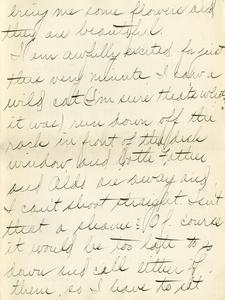 bring me some flowers and
they are beautiful.
I am awfully excited for just
this very minute I saw a
wild cat (I'm sure that's what
it was) run down off the
rock in front of the
window and both Father
and Aldo are away and
I can't shoot straight. Isn't
that a shame? Of course
it would be too late to go
down and call either of
them, so I have to sit